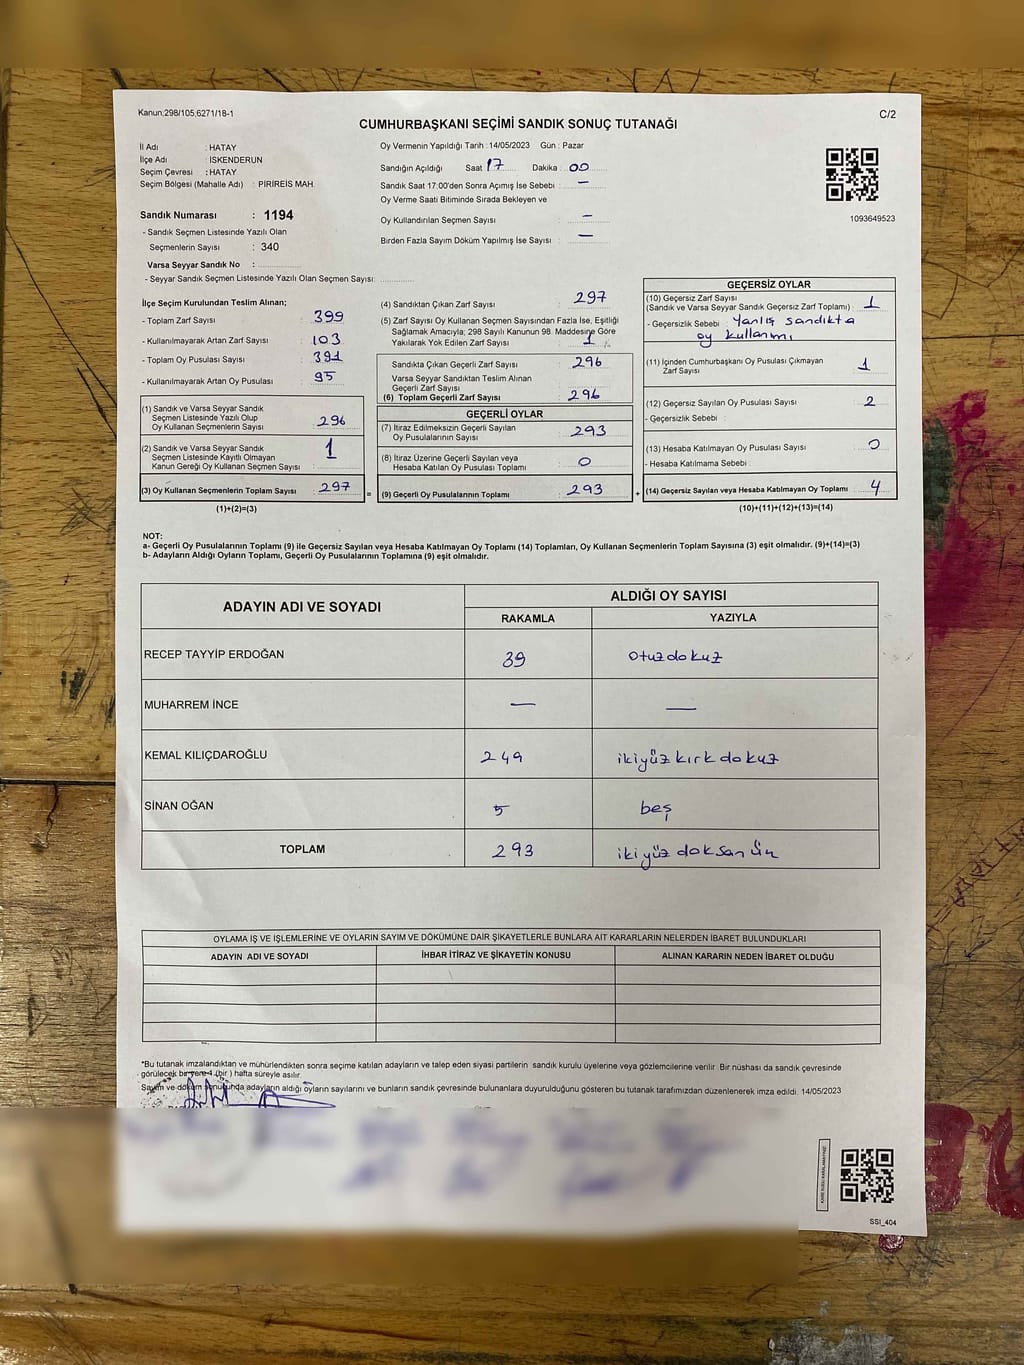 Kanun:298/105,6271/18-1
C/2
CUMHURBAŞKANI SEÇİMİ SANDIK SONUÇ TUTANAĞI
İl Adı : HATAY
İlçe Adı : İSKENDERUN
Seçim Çevresi : HATAY
Seçim Bölgesi (Mahalle Adı) : PİRİREİS MAH.
Oy Vermenin Yapıldığı Tarih :14/05/2023 Gün : Pazar
Sandığın Açıldığı Saat 17 Dakika 00
Sandık Saat 17:00'den Sonra Açımış İse Sebebi : —
Oy Verme Saati Bitiminde Sırada Bekleyen ve
Oy Kullandırılan Seçmen Sayısı : —
Birden Fazla Sayım Döküm Yapılmış İse Sayısı : —
1093649523
Sandık Numarası : 1194
- Sandık Seçmen Listesinde Yazılı Olan
Seçmenlerin Sayısı : 340
Varsa Seyyar Sandık No :
- Seyyar Sandık Seçmen Listesinde Yazılı Olan Seçmen Sayısı:
İlçe Seçim Kurulundan Teslim Alınan;
- Toplam Zarf Sayısı : 399
- Kullanılmayarak Artan Zarf Sayısı : 103
- Toplam Oy Pusulası Sayısı : 391
- Kullanılmayarak Artan Oy Pusulası : 95
(1) Sandık ve Varsa Seyyar Sandık
Seçmen Listesinde Yazılı Olup
Oy Kullanan Seçmenlerin Sayısı : 296
(2) Sandık ve Varsa Seyyar Sandık
Seçmen Listesinde Kayıtlı Olmayan
Kanun Gereği Oy Kullanan Seçmen Sayısı : 1
(3) Oy Kullanan Seçmenlerin Toplam Sayısı : 297
(1)+(2)=(3)
(4) Sandıktan Çıkan Zarf Sayısı : 297
(5) Zarf Sayısı Oy Kullanan Seçmen Sayısından Fazla İse, Eşitliği
Sağlamak Amacıyla; 298 Sayılı Kanunun 98. Maddesine Göre
Yakılarak Yok Edilen Zarf Sayısı : 1
Sandıkta Çıkan Geçerli Zarf Sayısı : 296
Varsa Seyyar Sandıktan Teslim Alınan
Geçerli Zarf Sayısı :
(6) Toplam Geçerli Zarf Sayısı : 296
GEÇERLİ OYLAR
(7) İtiraz Edilmeksizin Geçerli Sayılan
Oy Pusulalarının Sayısı : 293
(8) İtiraz Üzerine Geçerli Sayılan veya
Hesaba Katılan Oy Pusulası Toplamı : 0
= (9) Geçerli Oy Pusulalarının Toplamı : 293 +
GEÇERSİZ OYLAR
(10) Geçersiz Zarf Sayısı
(Sandık ve Varsa Seyyar Sandık Geçersiz Zarf Toplamı) : 1
- Geçersizlik Sebebi : Yanlış sandıkta
oy kullanımı
(11) İçinden Cumhurbaşkanı Oy Pusulası Çıkmayan
Zarf Sayısı : 1
(12) Geçersiz Sayılan Oy Pusulası Sayısı : 2
- Geçersizlik Sebebi :
(13) Hesaba Katılmayan Oy Pusulası Sayısı : 0
- Hesaba Katılmama Sebebi :
(14) Geçersiz Sayılan veya Hesaba Katılmayan Oy Toplamı : 4
(10)+(11)+(12)+(13)=(14)
NOT:
a- Geçerli Oy Pusulalarının Toplamı (9) ile Geçersiz Sayılan veya Hesaba Katılmayan Oy Toplamı (14) Toplamları, Oy Kullanan Seçmenlerin Toplam Sayısına (3) eşit olmalıdır. (9)+(14)=(3)
b- Adayların Aldığı Oyların Toplamı, Geçerli Oy Pusulalarının Toplamına (9) eşit olmalıdır.
ADAYIN ADI VE SOYADI ALDIĞI OY SAYISI
RAKAMLA YAZIYLA
RECEP TAYYİP ERDOĞAN 39 otuzdokuz
MUHARREM İNCE — —
KEMAL KILIÇDAROĞLU 249 ikiyüz kırk dokuz
SİNAN OĞAN 5 beş
TOPLAM 293 ikiyüz doksan ün
OYLAMA İŞ VE İŞLEMLERİNE VE OYLARIN SAYIM VE DÖKÜMÜNE DAİR ŞİKAYETLERLE BUNLARA AİT KARARLARIN NELERDEN İBARET BULUNDUKLARI
ADAYIN ADI VE SOYADI İHBAR İTİRAZ VE ŞİKAYETİN KONUSU ALINAN KARARIN NEDEN İBARET OLDUĞU
*Bu tutanak imzalandıktan ve mühürlendikten sonra seçime katılan adayların ve talep eden siyasi partilerin sandık kurulu üyelerine veya gözlemcilerine verilir. Bir nüshası da sandık çevresinde
görülecek bir yere 1 (bir ) hafta süreyle asılır.
Sayım ve döküm sonucunda adayların aldığı oyların sayılarını ve bunların sandık çevresinde bulunanlara duyurulduğunu gösteren bu tutanak tarafımızdan düzenlenerek imza edildi. 14/05/2023
SSI_404